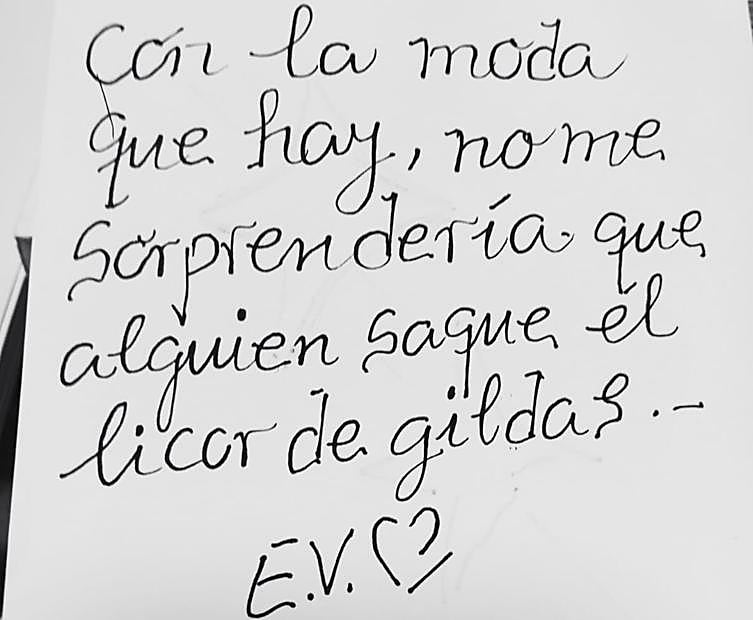 Con la moda
que hay, no me
sorprendería que
alguien saque el
licor de gildas.-
E.V.♡